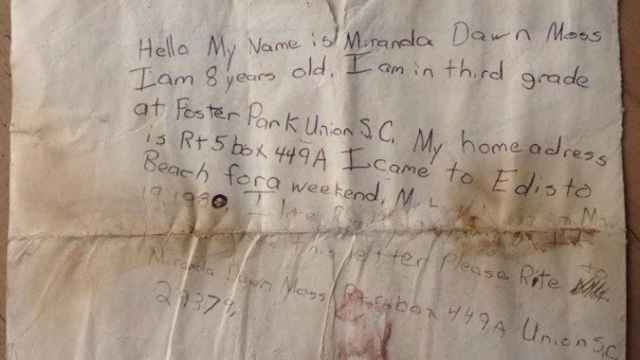 Hello My Name is Miranda Dawn Moss
I am 8 years old. I am in third grade
at Foster Park Union S.C. My home adress
is Rt 5 box 449A I came to Edisto
Beach for a weekend,
19, 1990, I
this letter Please Rite to
Miranda Dawn Moss Rt 5 box 449A Union S.C.
29379,